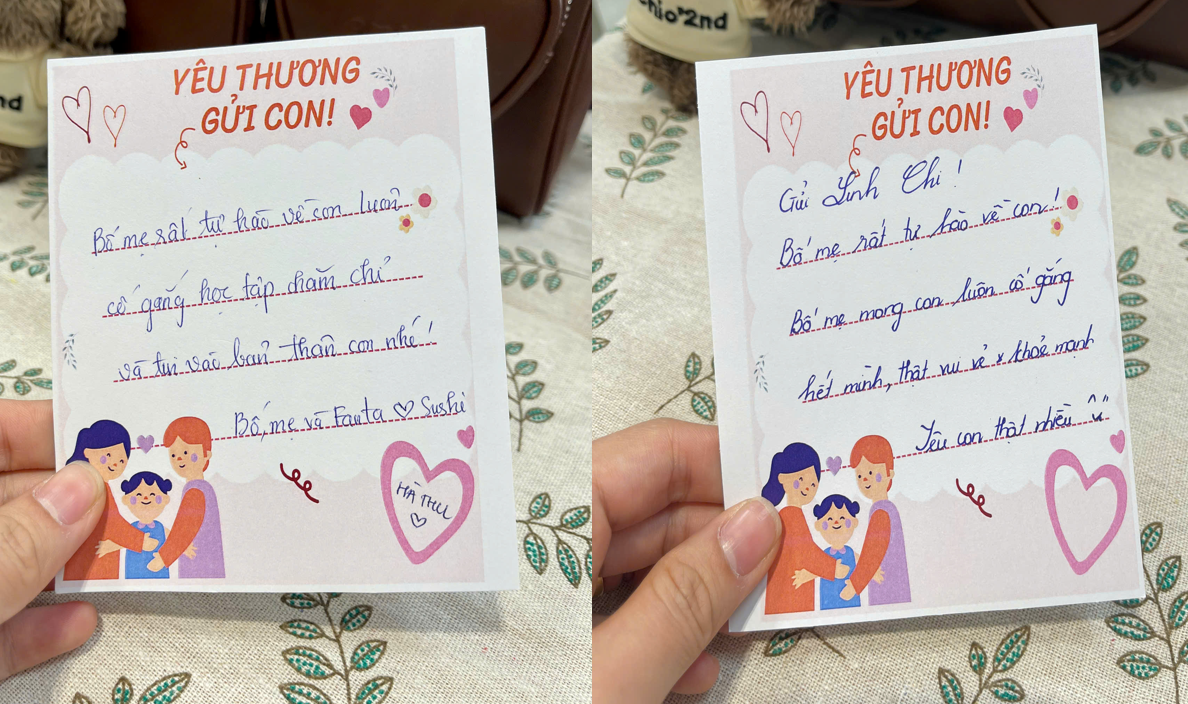 nd
YÊU THƯƠNG
GỬI CON!
Bố mẹ rất tự hào về con luôn
cố gắng học tập chăm chỉ
và tin vào bản thân con nhé!
Bố, mẹ và Fanta ♡ Sushi
HÀ THU
♡
chio's 2nd
YÊU THƯƠNG
GỬI CON!
Gửi Linh Chi!
Bố mẹ rất tự hào về con!
Bố mẹ mong con luôn cố gắng
hết mình, thật vui vẻ & khoẻ mạnh
Yêu con thật nhiều